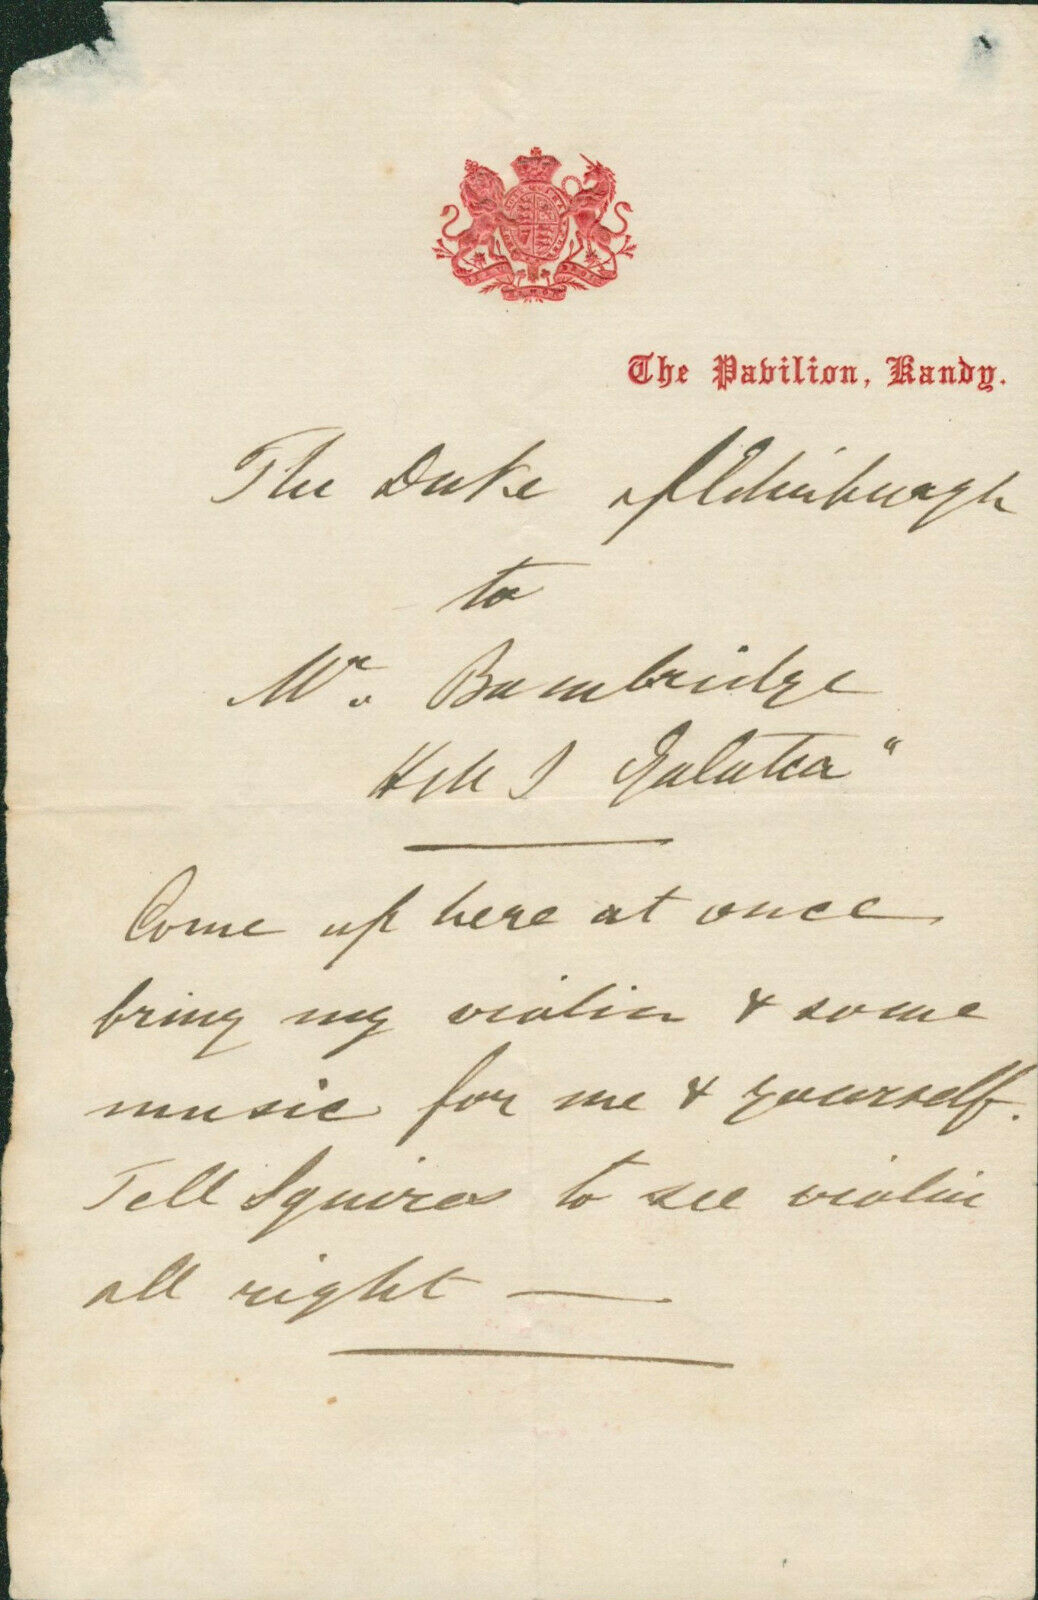 The Pavilion, Kandy.
The Duke of Edinburgh
to
Mr. Bambridge
HMS Galatea"
Come up here at once
bring my violin & some
music for me & yourself.
Tell Squires to see violin
all right —